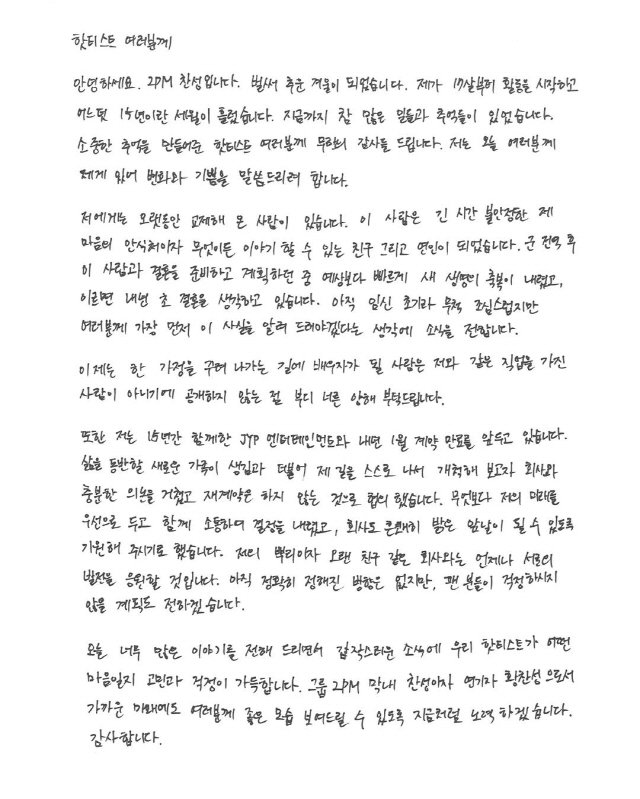 핫티스트 여러분께
안녕하세요. 2PM 찬성입니다. 벌써 추운 겨울이 되었습니다. 제가 17살부터 활동을 시작하고
어느덧 15년이란 세월이 흘렀습니다. 지금까지 참 많은 일들과 추억들이 있었습니다.
소중한 추억을 만들어준 핫티스트 여러분께 무한의 감사를 드립니다. 저는 오늘 여러분께
제게 있어 변화와 기쁨을 말씀드리려 합니다.
저에게는 오랫동안 교제해 온 사람이 있습니다. 이 사람은 긴 시간 불안정한 제
마음의 안식처이자 무엇이든 이야기 할 수 있는 친구 그리고 연인이 되었습니다. 군 전역 후
이 사람과 결혼을 준비하고 계획하던 중 예상보다 빠르게 새 생명의 축복이 내렸고,
이르면 내년 초 결혼을 생각하고 있습니다. 아직 임신 초기라 무척 조심스럽지만
여러분께 가장 먼저 이 사실을 알려 드려야겠다는 생각에 소식을 전합니다.
이제는 한 가정을 꾸려 나가는 길에 배우자가 될 사람은 저와 같은 직업을 가진
사람이 아니기에 공개하지 않는 점 부디 너른 양해 부탁드립니다.
또한 저는 15년간 함께한 JYP 엔터테인먼트와 내년 1월 계약 만료를 앞두고 있습니다.
삶을 동반할 새로운 가족이 생김과 더불어 제 길을 스스로 나서 개척해 보고자 회사와
충분한 의논을 거쳤고 재계약은 하지 않는 것으로 협의 했습니다. 무엇보다 저의 미래를
우선으로 두고 함께 소통하여 결정을 내렸고, 회사도 흔쾌히 밝은 앞날이 될 수 있도록
기원해 주시기로 했습니다. 저의 뿌리이자 오랜 친구 같은 회사와는 언제나 서로의
발전을 응원할 것입니다. 아직 정확히 정해진 방향은 없지만, 팬 분들이 걱정하시지
않을 계획도 전하겠습니다.
오늘 너무 많은 이야기를 전해 드리면서 갑작스러운 소식에 우리 핫티스트가 어떤
마음일지 고민과 걱정이 가득합니다. 그룹 2PM 막내 찬성이자 연기자 황찬성으로서
가까운 미래에도 여러분께 좋은 모습 보여드릴 수 있도록 지금처럼 노력하겠습니다.
감사합니다.